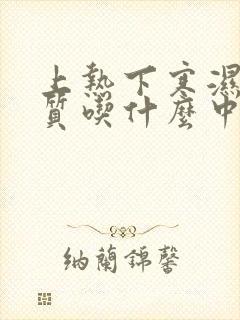 上熱下寒濕
質喫什麼中
納蘭錦馨